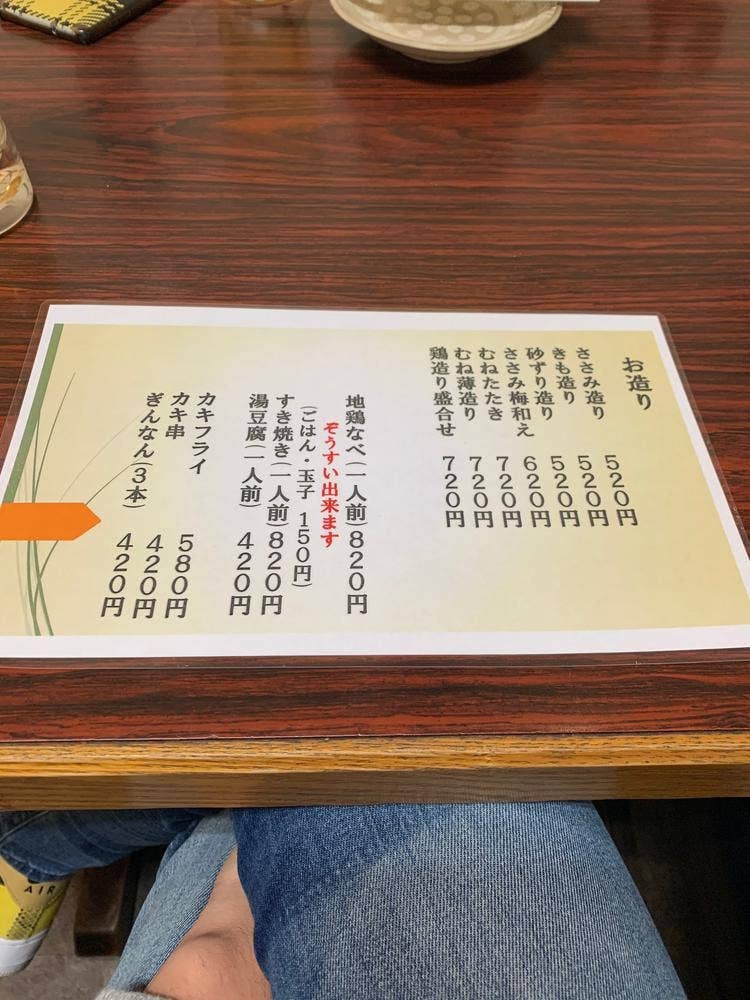 お造り
ささみ造り 520円
きも造り 520円
砂ずり造り 520円
ささみ梅和え 620円
むねたたき 720円
むね薄造り 720円
鶏造り盛合せ 720円
地鶏なべ(一人前)820円
ぞうすい出来ます
(ごはん・玉子 150円)
すき焼き(一人前)820円
湯豆腐(一人前) 420円
カキフライ 580円
カキ串 420円
ぎんなん(3本) 420円
AIR